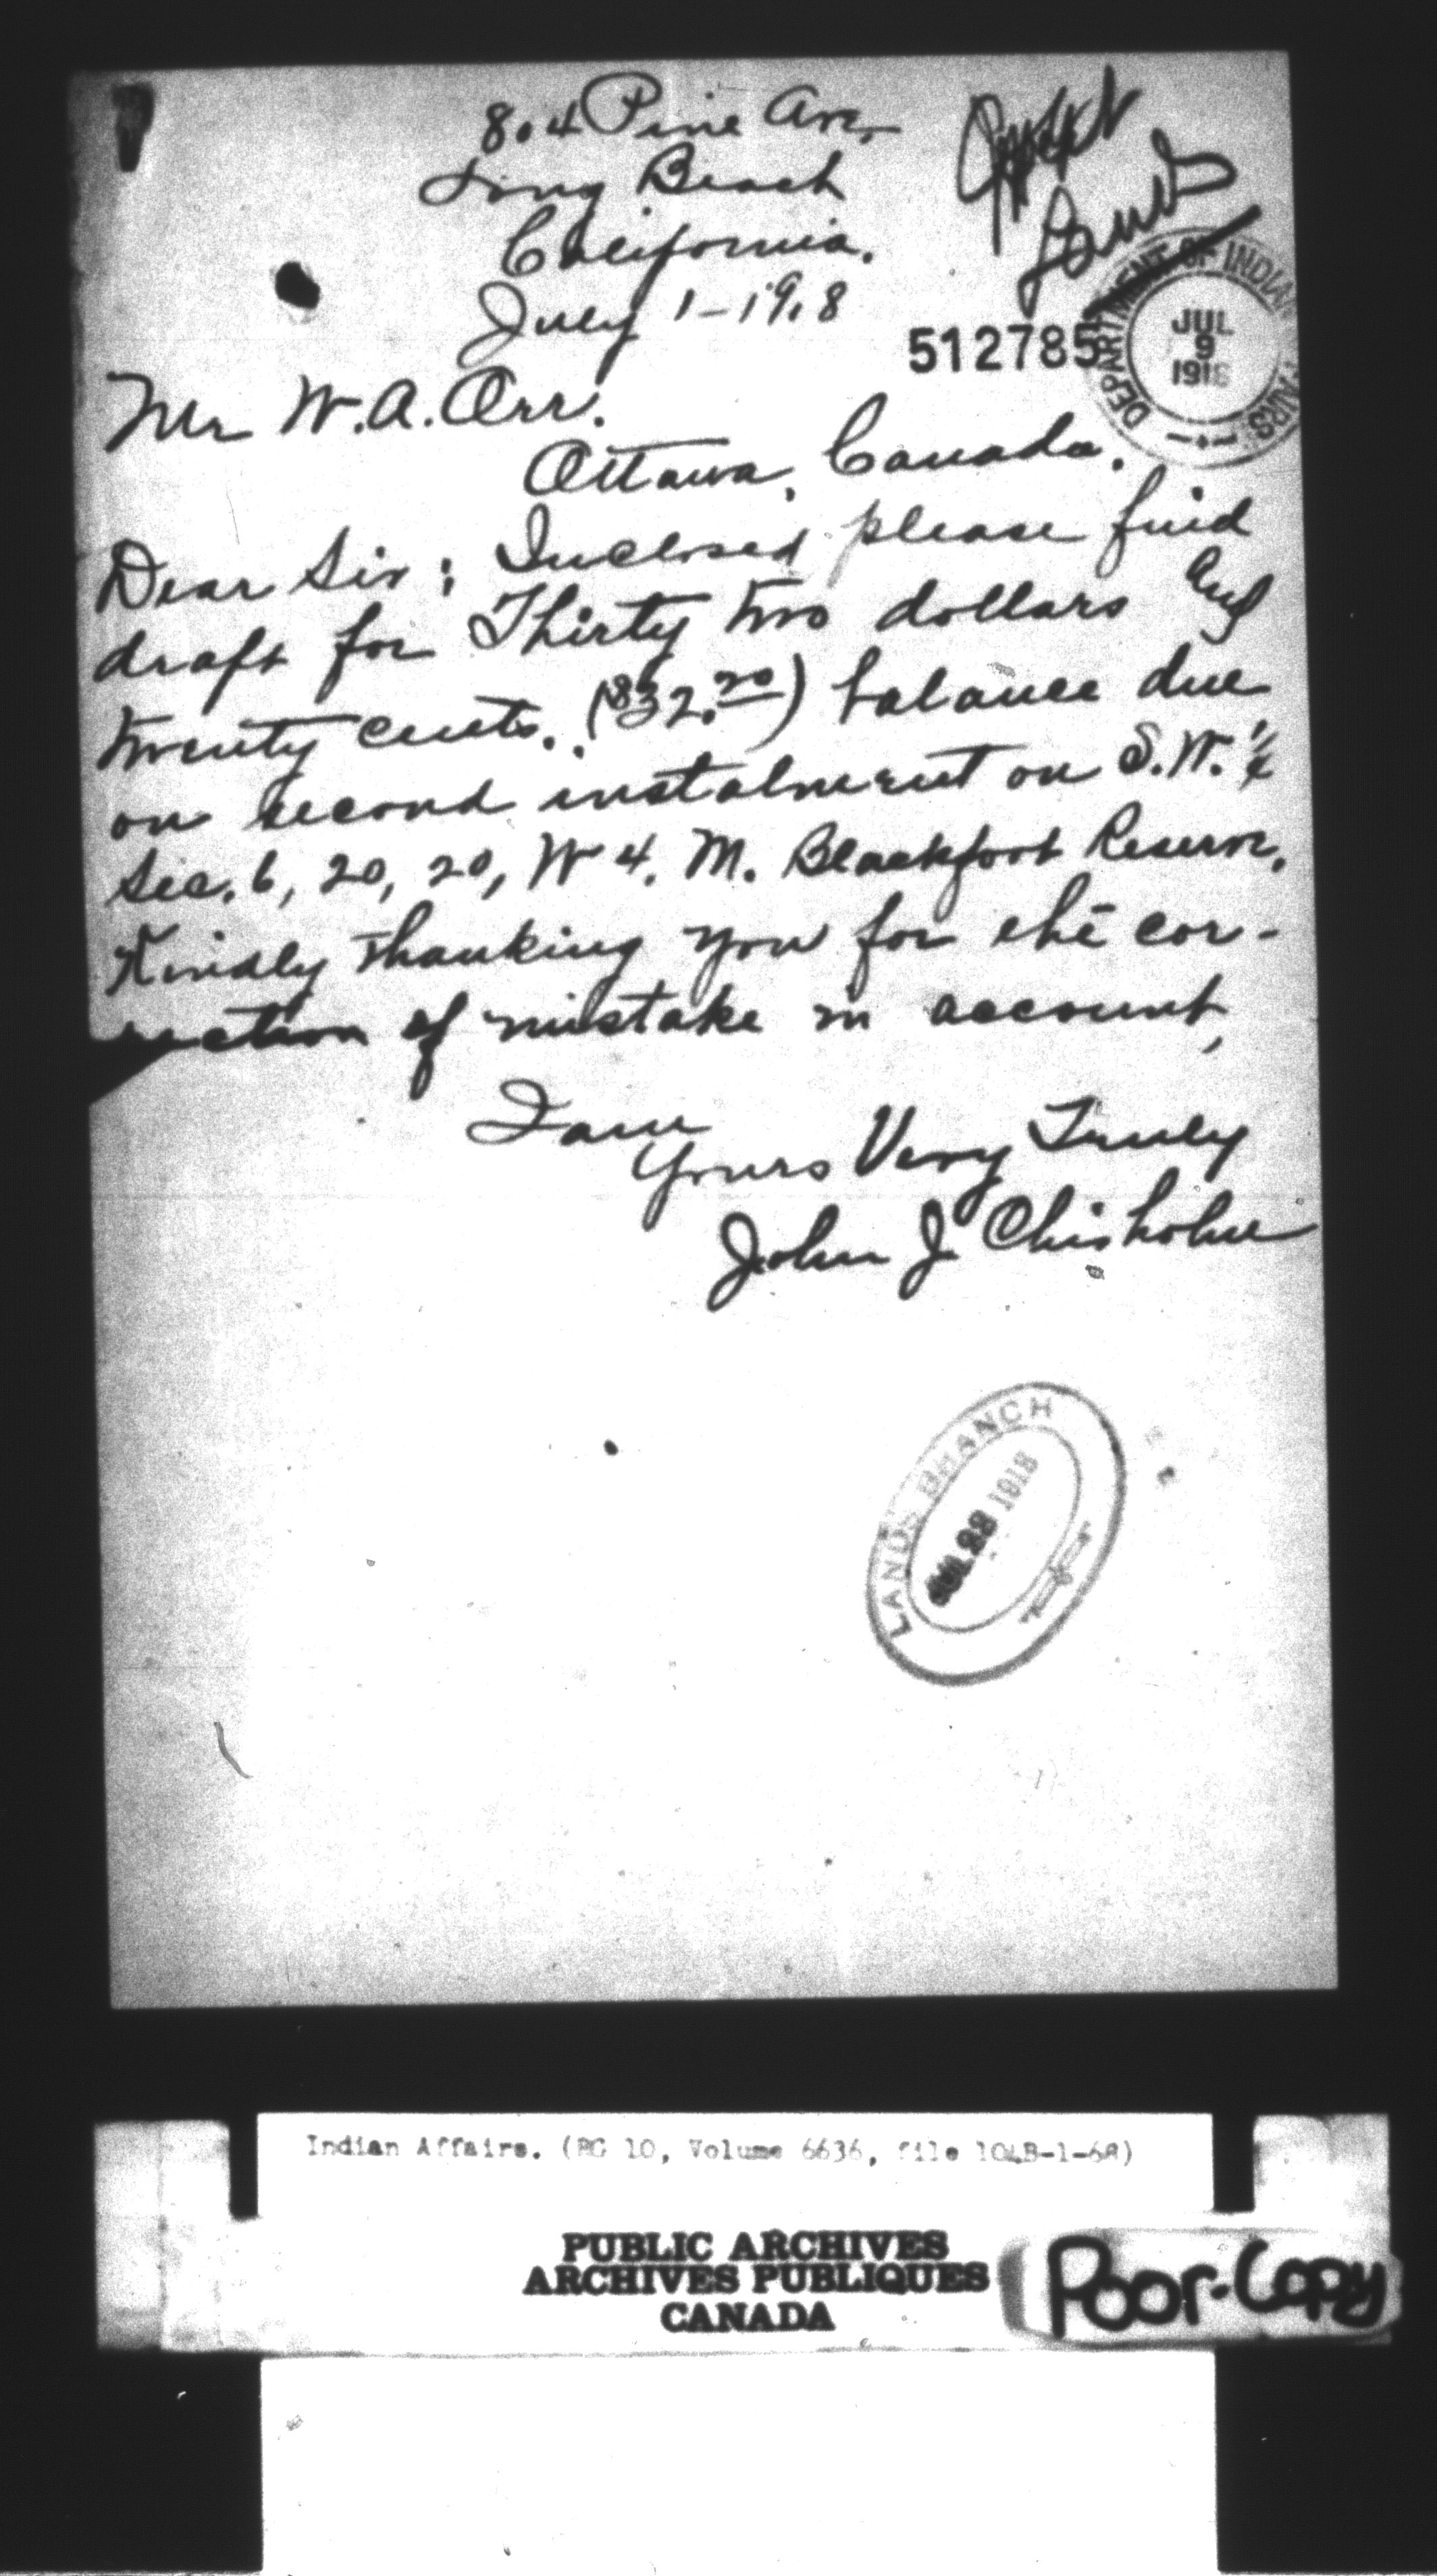 804 Pine Ave,
Long Beach
California.
July 1-1918
Land
512785
DEPARTMENT OF INDIAN AFFAIRS
JUL
9
1918
Mr W.A. Orr.
Ottawa, Canada.
Dear Sir: Inclosed please find
draft for Thirty two dollars and
twenty cents. ($32.20) balance due
on second instalment on S.W. 1/4
Sec. 6, 20, 20, W 4. M. Blackfoot Reserve.
Kindly thanking you for the cor-
rection of mistake in account,
I am
Yours Very Truly
John J. Chisholm
LANDS BRANCH
1918
Indian Affairs. (RG 10, Volume 6636, file 104B-1-68)
PUBLIC ARCHIVES
ARCHIVES PUBLIQUES
CANADA
Poor-Copy